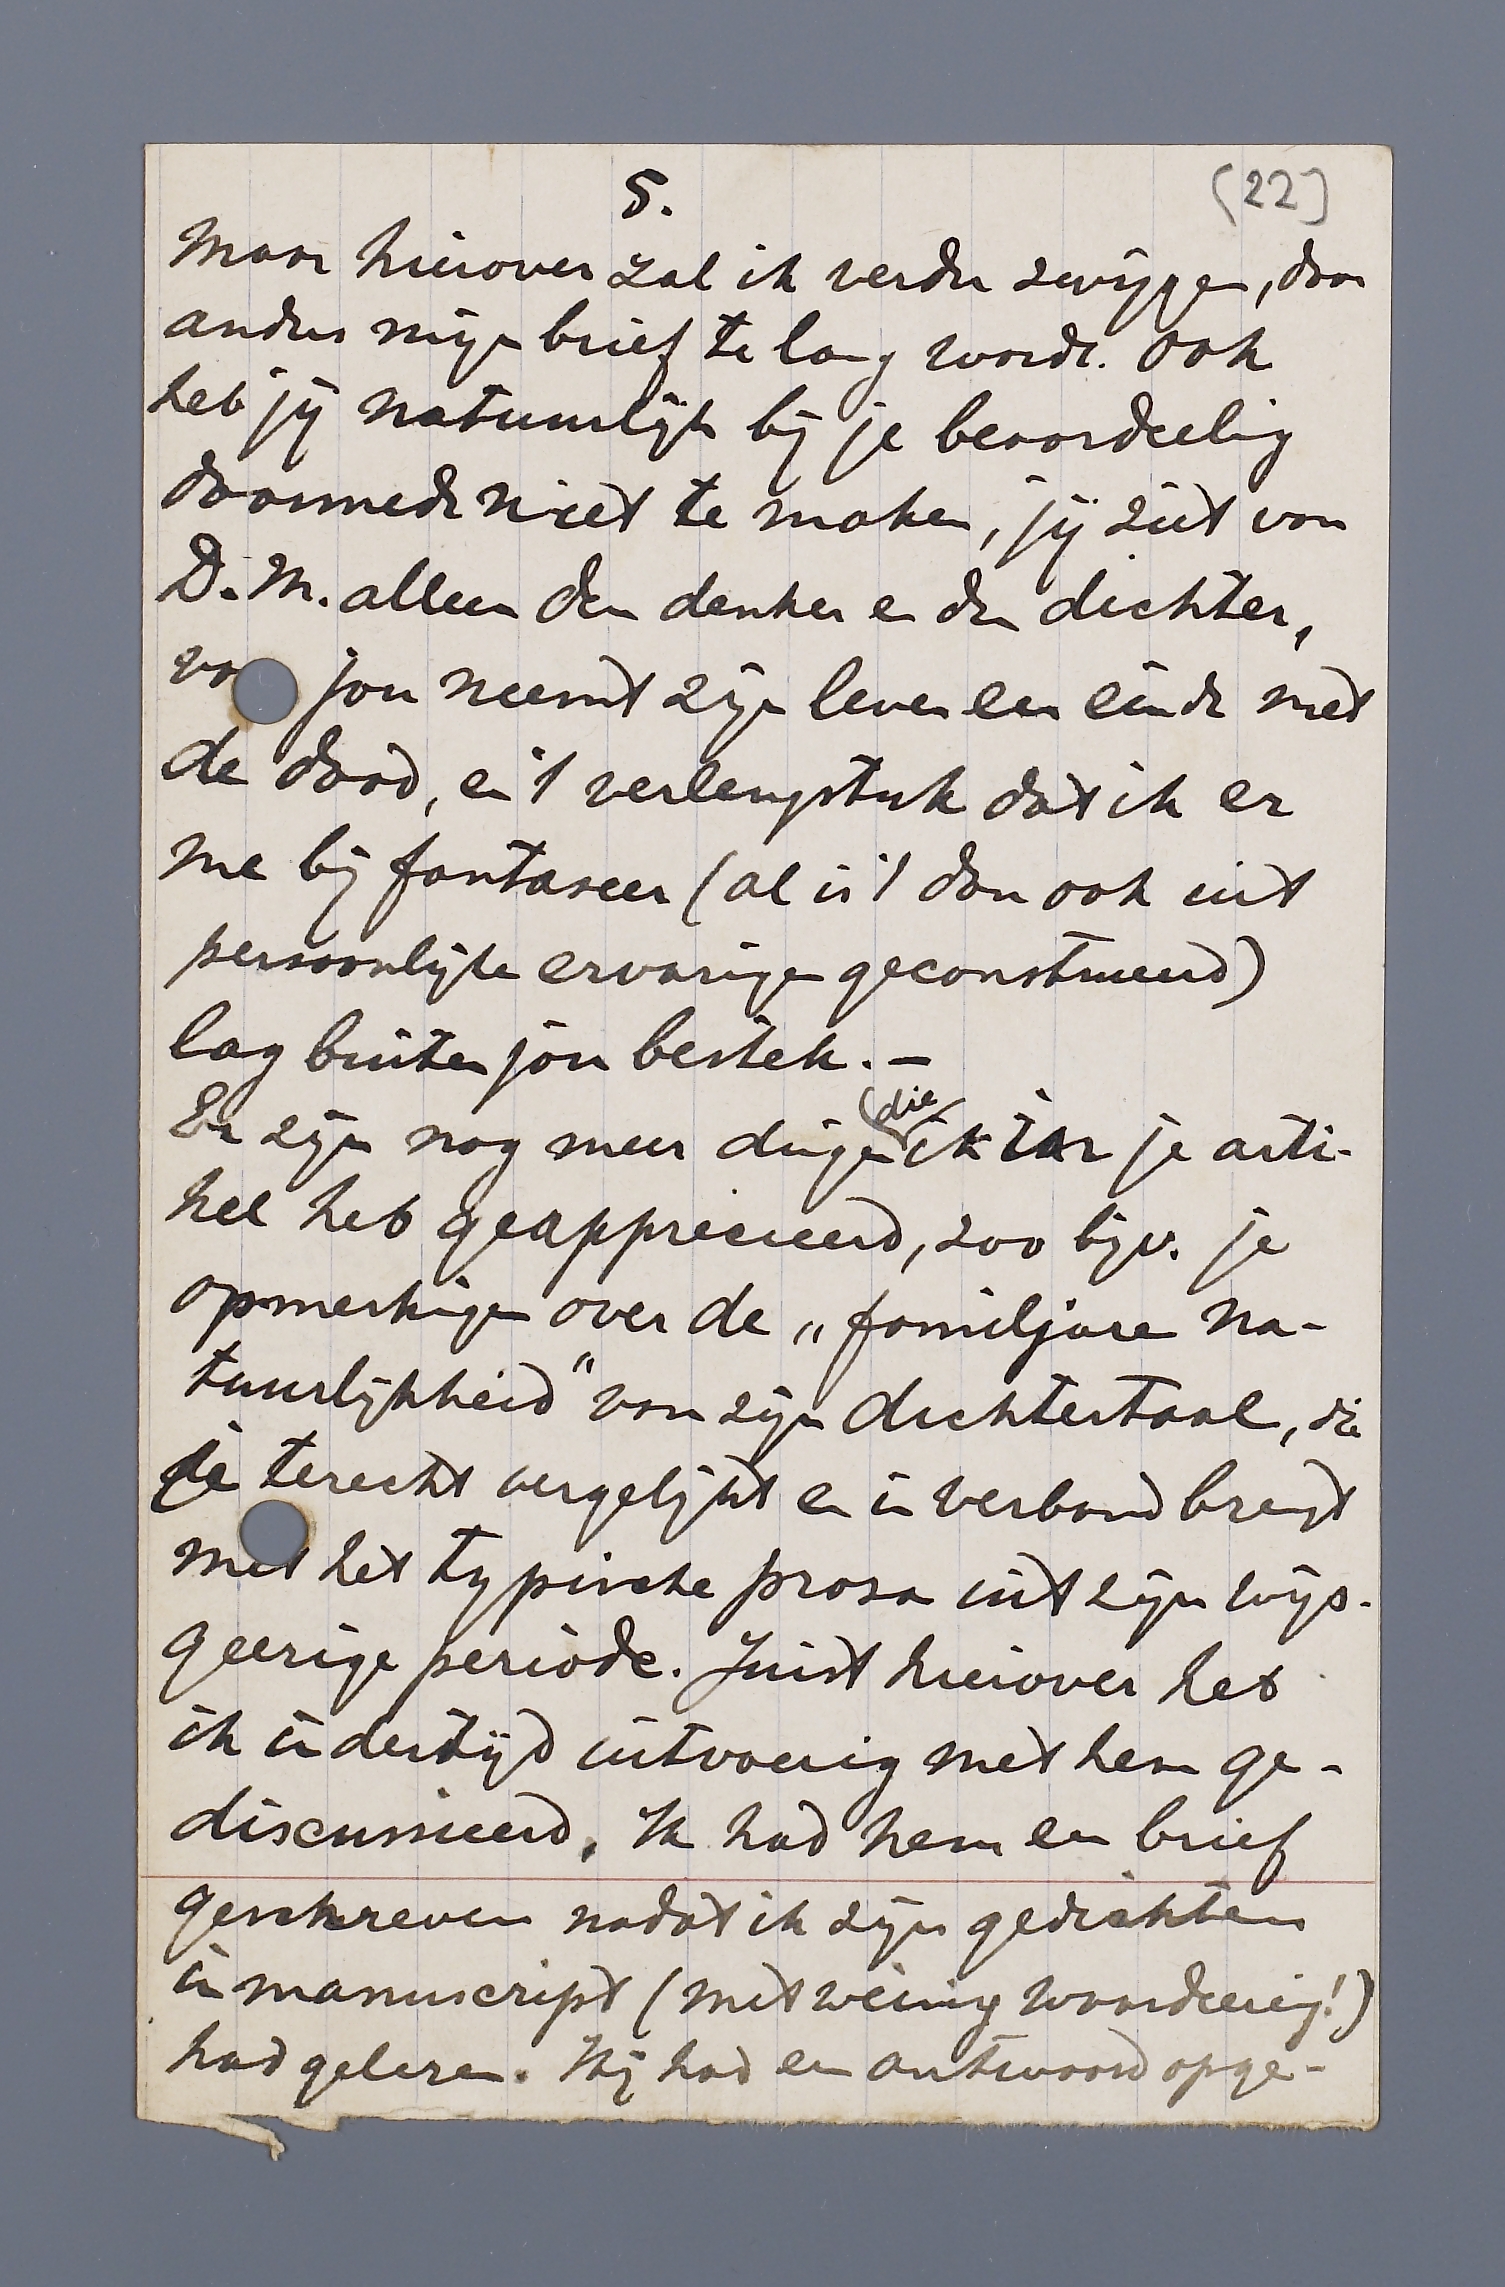 5.
(22)
Maar hierover zal ik verder zwijgen, daar
anders mijn brief te lang wordt. Ook
heb jij natuurlijk bij je beoordeeling
daarmede niet te maken, jij ziet van
D. M. alleen den denker en den dichter,
vo jou neemt zijn leven een einde met
de dood, en 't verlengstuk dat ik er
me bij fantaseer (al is 't dan ook uit
persoonlijke ervaringen geconstrueerd)
lag buiten jóu bestek. —
Er zijn nog meer dingen (die) ik in je arti-
kel heb geapprecieerd, zoo bijv. je
opmerkingen over de „familjare na-
tuurlijkheid" van zijn dichtertaal, die
je terecht vergelijkt en in verband brengt
met het typische proza uit zijn wijs-
geerige periode. Juist hierover heb
ik indertijd uitvoerig met hem ge-
discussieerd. Ik had hem een brief
geschreven nadat ik zijn gedichten
in manuscript (met weinig waardeering!)
had gelezen. Hij had een antwoord opge-